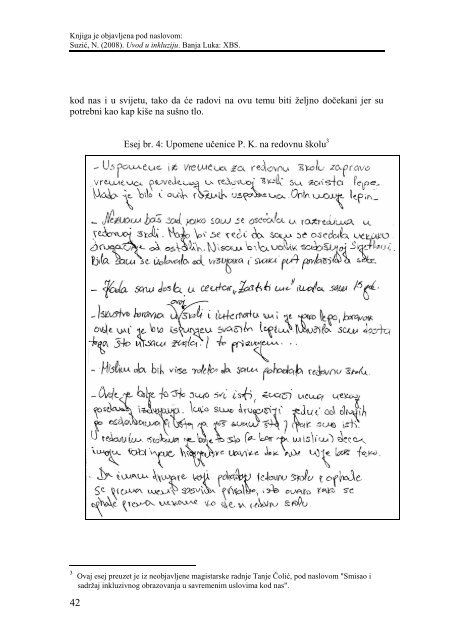 Knjiga je objavljena pod naslovom:
Suzić, N. (2008). Uvod u inkluziju. Banja Luka: XBS.
kod nas i u svijetu, tako da će radovi na ovu temu biti željno dočekani jer su
potrebni kao kap kiše na sušno tlo.
Esej br. 4: Upomene učenice P. K. na redovnu školu3
- Uspomene iz vremena za redovnu školu zapravo
vremena provedenog u redovnoj školi su zaista lepe.
Mada je bilo i onih ružnih uspomena. Onih manje lepih_
- Neznam baš sad kako sam se osećala u razredima u
redovnoj školi. Može bi se reći da sam se osećala nekako
drugačije od ostalih. Nisam bila uvek sa
Bila sam se izolovala od vršnjaka i svaki put
- Kada sam došla u centar „Zaštiti me" imala sam 15 god.
ovoj
- Iskustvo boravka u školi i internatu mi je jako lepo, boravak
ovde mi je bio ispunjen svačim lepim. Naučila sam dosta
toga što nisam znala! I to priznajem...
- Mislim da bih više volela da sam pohađala redovnu školu.
- Ovde je bolje to što smo svi isti, znači nema nekog
posebnog izdvajanja. Iako smo drugačiji jedni od drugih
po ipak smo isti.
U redovnim školama je bolje to što (a bar ja mislim) deca
imaju dok ovde nije baš tako.
- Da imam drugare koji pohađaju redovnu školu i ophode
se prema meni sasvim prirodno, isto onako kako se
ophode prema nekome ko ide u redovnu školu.
3 Ovaj esej preuzet je iz neobjavljene magistarske radnje Tanje Čolić, pod naslovom "Smisao i
sadržaj inkluzivnog obrazovanja u savremenim uslovima kod nas".
42